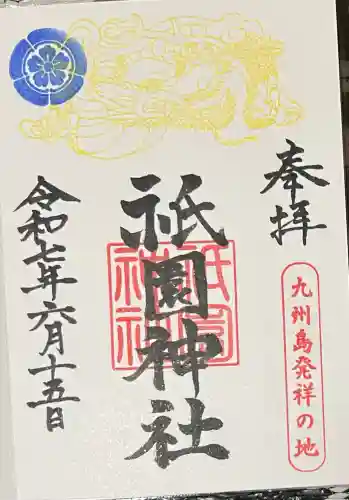 奉拝
九州島発祥の地
祇園神社
祇園神社
令和七年六月十五日